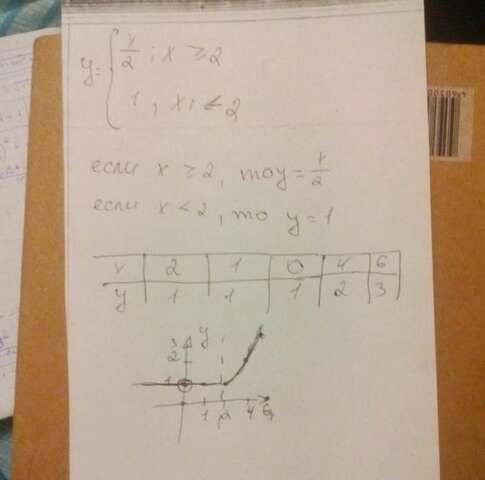 y = { x/2 ; x ≥ 2
1 , x, < 2
если x ≥ 2, то y = x/2
если x < 2, то y = 1
x 2 1 0 4 6
y 1 1 1 2 3
y
3
2
1
1 2 4 6